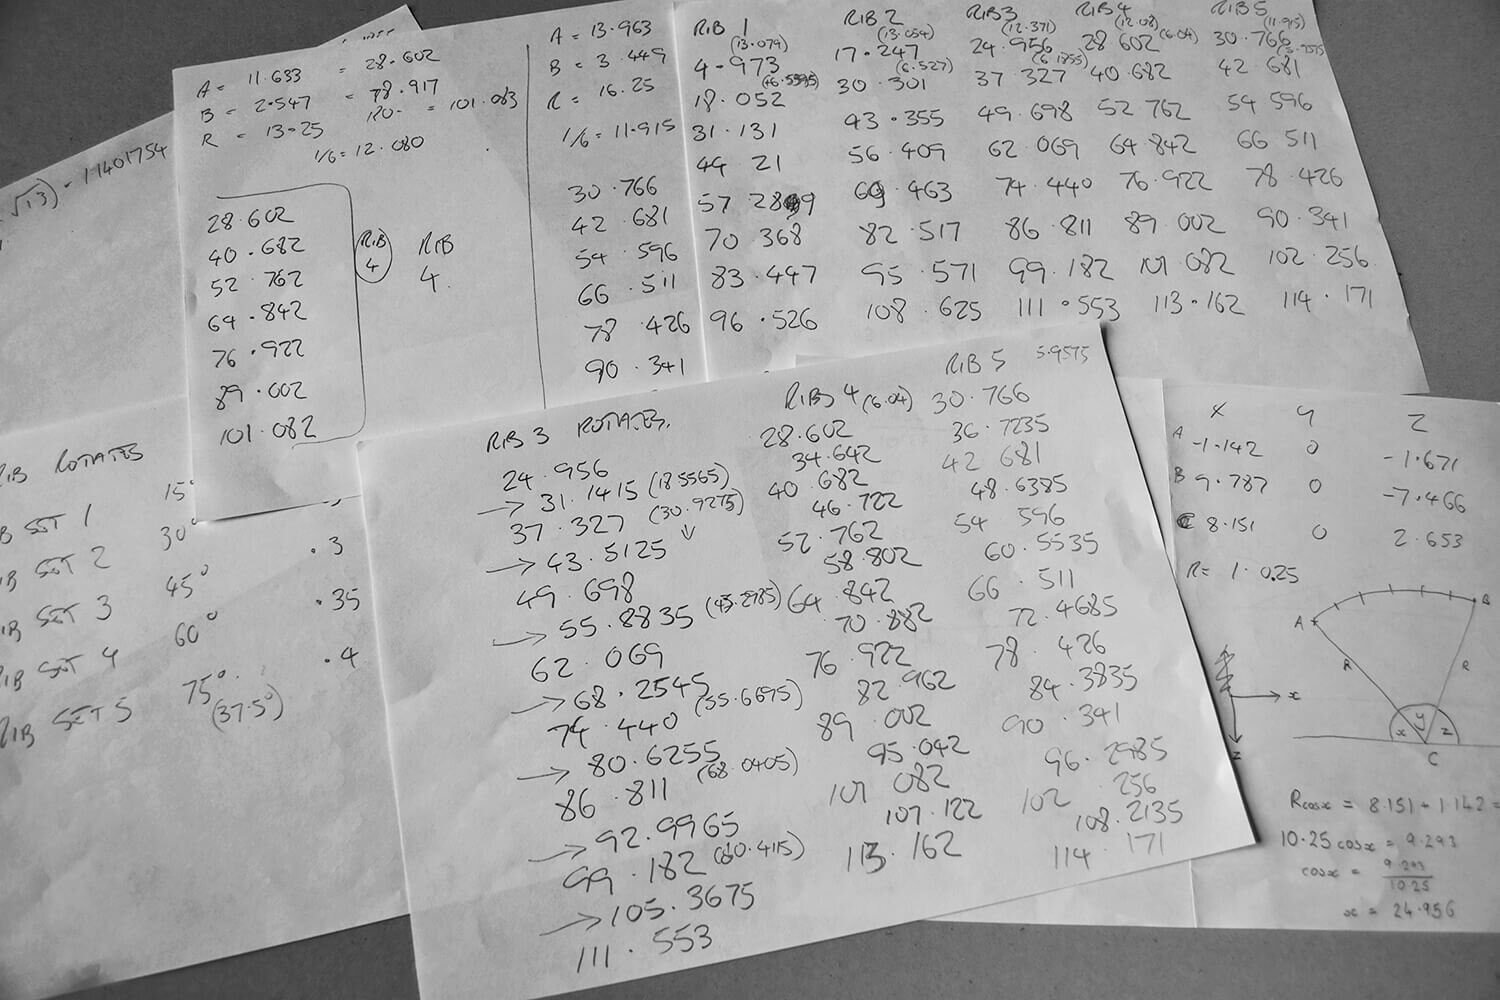 √1.3) = 11401754
A = 11.633 = 28.602
B = 2.547 = 78.917
R = 13.25 120- = 101.083
1/6 = 12.080
28.602
40.682
52.762
64.842
76.922
89.002
101.082
RIB
4
RIB
4.
A = 13.963
B = 3.449
R = 16.25
1/6 = 11.915
30.766
42.681
54.596
66.511
78.426
90.341
RIB 1 RIB 2 RIB 3 RIB 4 RIB 5
(13.079) (13.054) (12.371) (12.08) (11.915)
4.973 17.247 24.956 28 602 (6.04) 30.766
(6.527) (6.1855)
18.052 30.301 37 327 40.682 42.681
31.131 43.355 49.698 52 762 54 596
44 21 56.409 62 069 64 842 66 511
57 289 69.463 74.440 76.922 78.426
70.368 82.517 86.811 89 002 90.341
83.447 95.571 99.182 101 082 102.256
96.526 108.625 111.553 113.162 114.171
RIB ROTATES
SET 1 15°
SET 2 30°
SET 3 45° .3
SET 4 60° .35
RIB SET 5 75° .4
(37.5°)
RIB 3 ROTATES.
24.956
→ 31.1415 (18.5565)
37.327 (30.9275)
→ 43.5125
49.698
→ 55.8835
62.069
→ 68.2545
74.440
→ 80.6255
86.811 (68.0405)
→ 92.9965
99.182 (80.415)
→ 105.3675
111.553
RIBS 4 (6.04)
28.602
34.642
40.682
46.722
52.762
58.802
64.842
70.882
76.922
82.962
89.002
95.042
101 082
107.122
113.162
RIB 5 5.9575
30.766
36.7235
42 681
48.6385
54 596
60.5535
66.511
72.4685
78.426
84.3835
90.341
96.2985
102 256
108.2135
114.171
X Y Z
A -1.142 0 -1.671
B 9.787 0 -7.466
C 8.151 0 2.653
R = 10.25
A B
R R
x y z
C
x
z
Rcosx = 8.151 + 1.142 =
10.25 cosx = 9.293
cosx = 9.293
10.25
x = 24.956